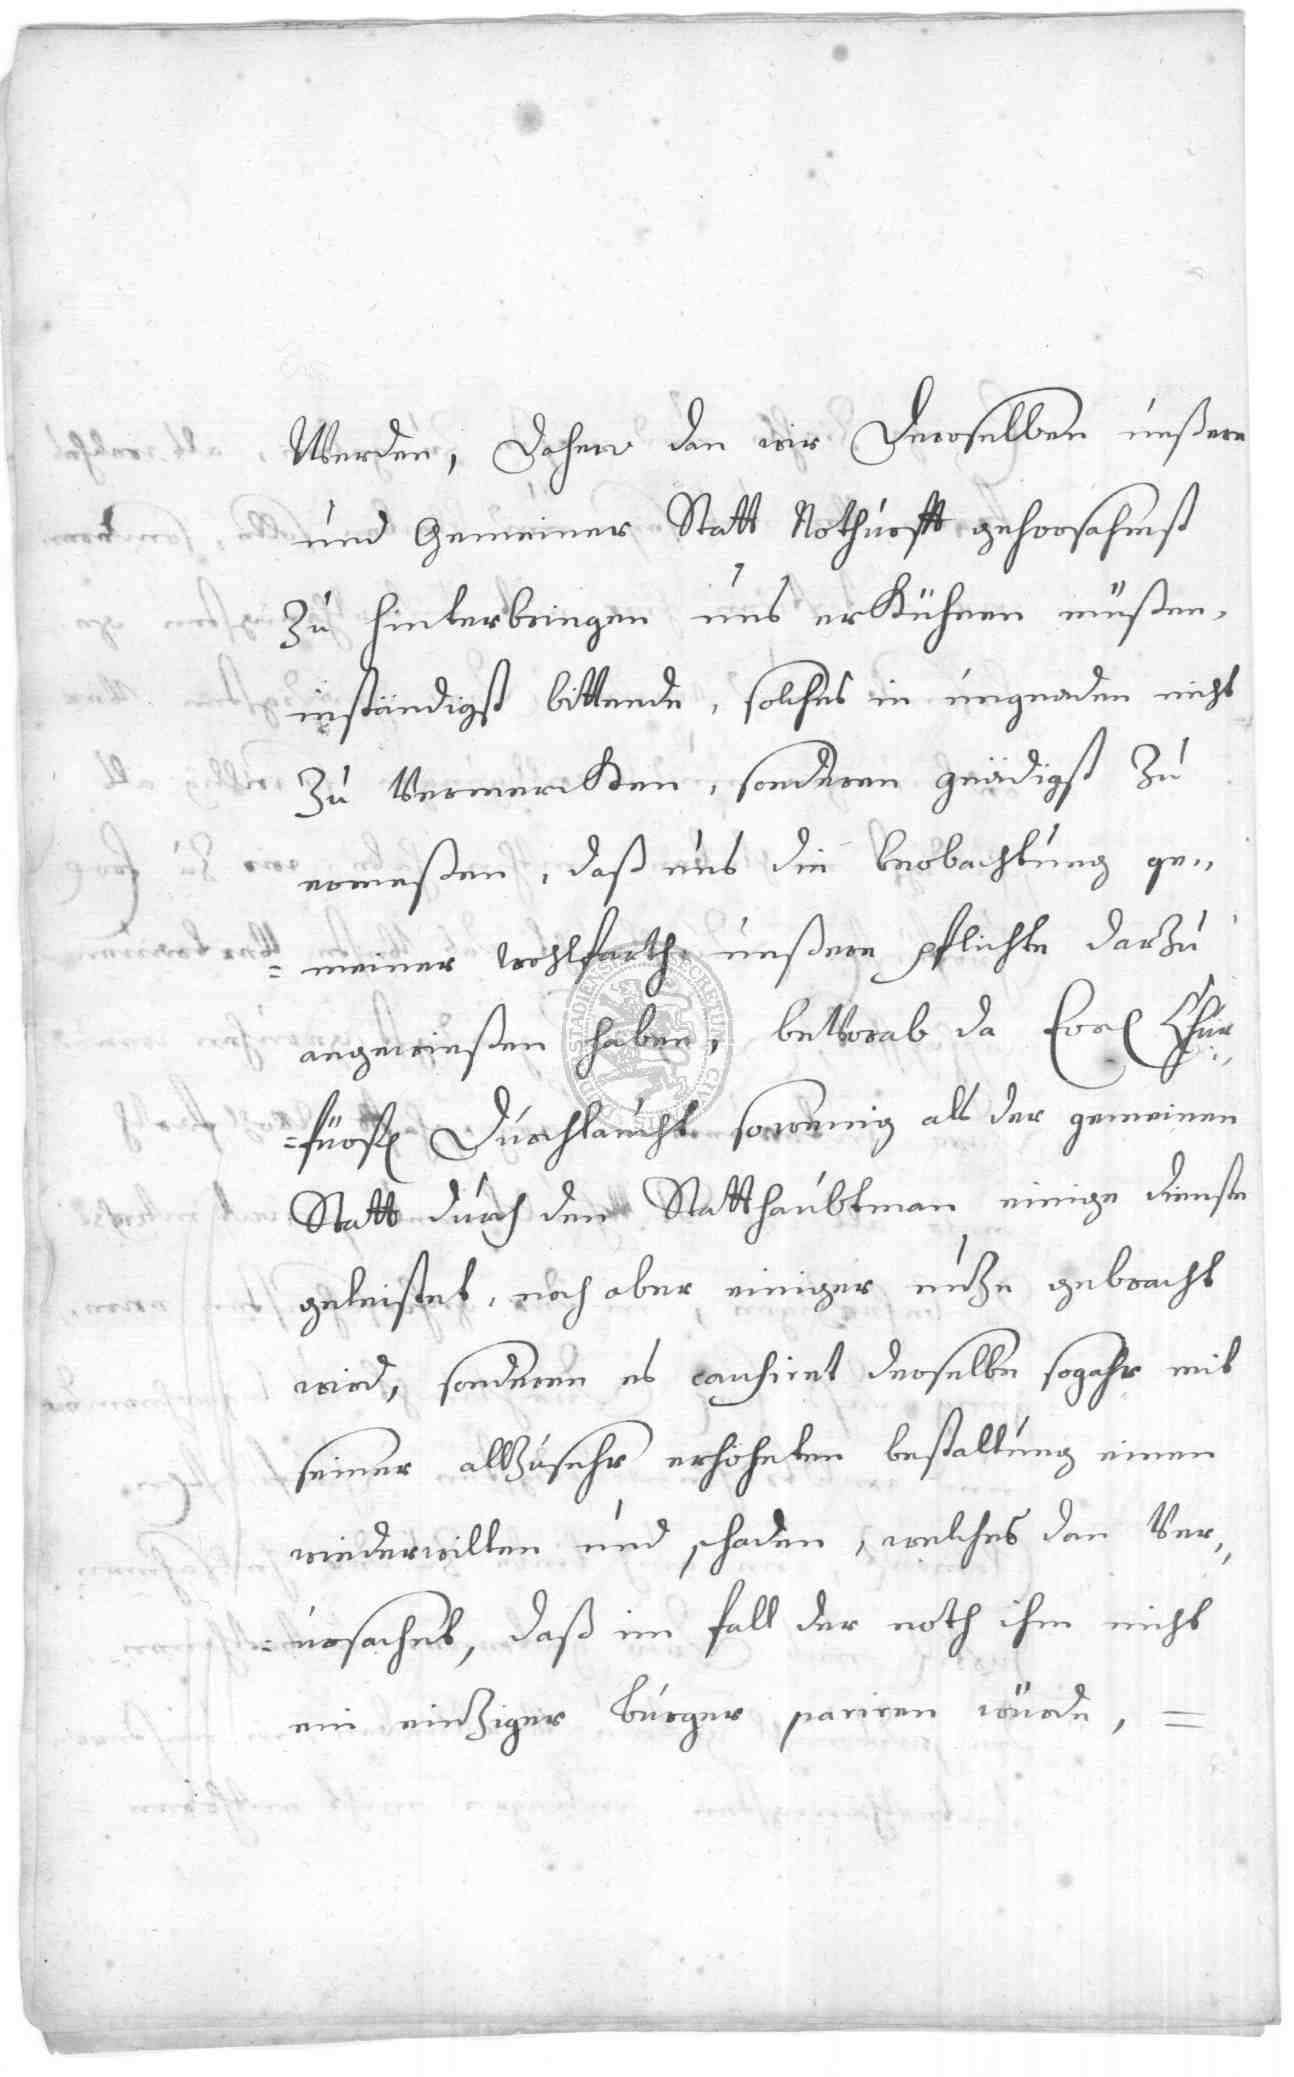 Werden, Dahero dan wir Deroselben unßere
und Gemeiner Statt Nothurfft gehorsahmst
Zu hinterbringen uns erKühnen müßen,
inständigst bittende, solches in ungnaden nicht
Zu VermercKen, sonderen gnädigst Zu
ermeßen, daß uns die beobachtung ge„
= meiner wohlfarth unßere pflichte darZu
angewießen haben, beVorab da Ewrl Chur„
=fürstl Durchlaucht sowenig alß der gemeinen
Statt durch den Statthaubtman einige dienste
geleistet, noch aber einiger nuZe gebracht
wird, sonderen es causiret derselbe sogahr mit
seiner allZusehr erhöheten bestallung einen
wiederwillen und schaden, welches dan Ver„
=ursachet, daß im fall der noth ihm nicht
ein eintZiger burger pariren würde, =
SECRETUM CIV
STADIENS